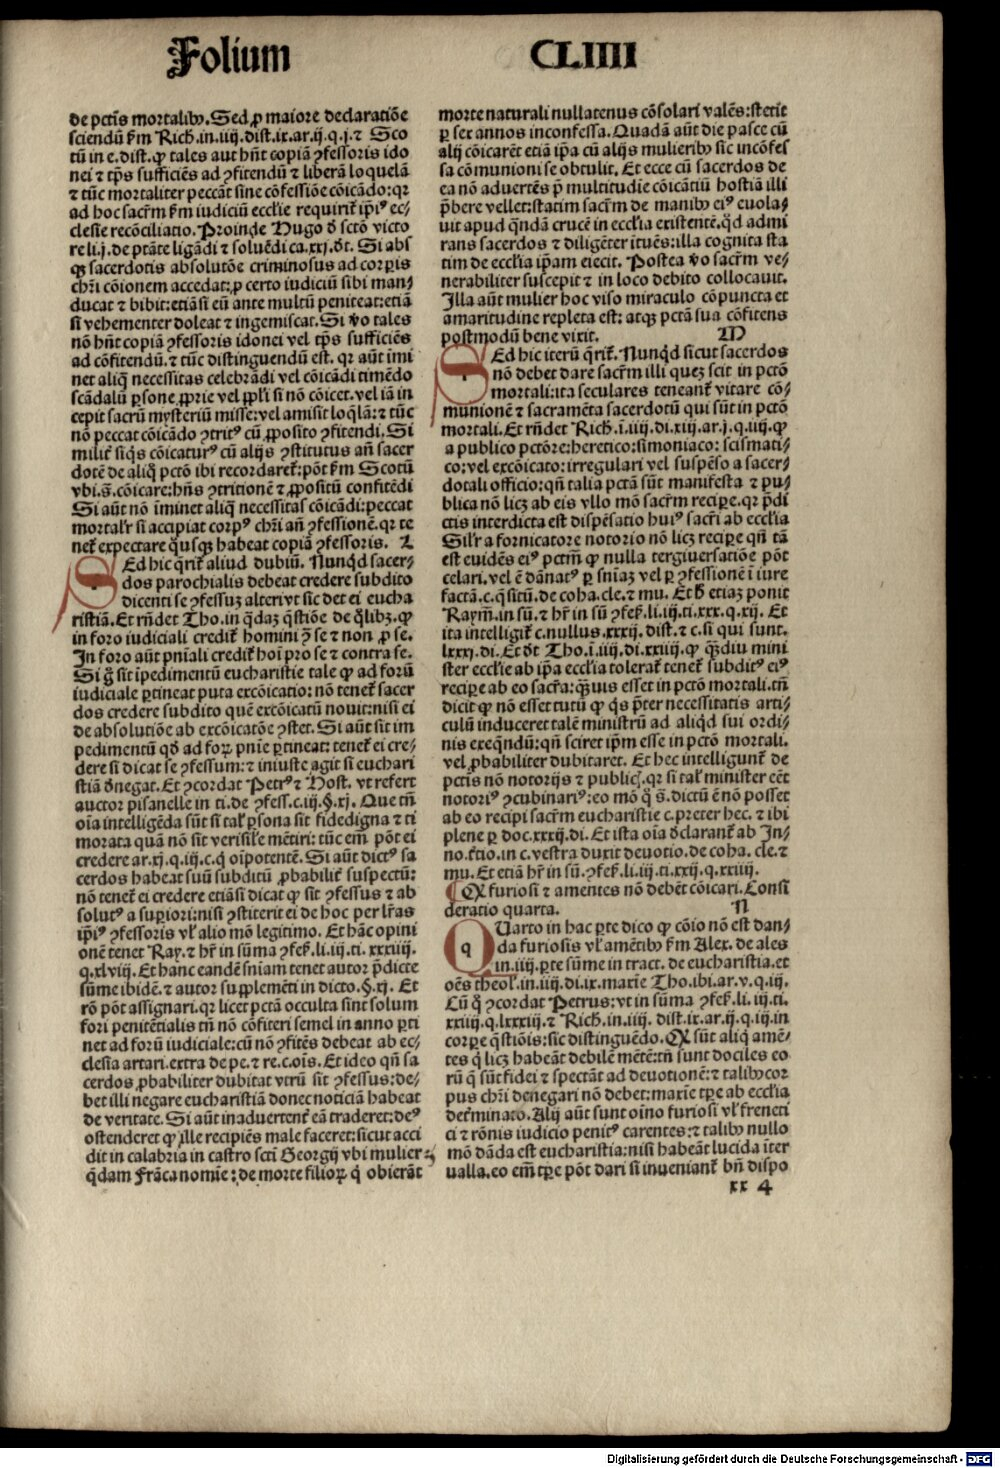 Folium CLIIII
de pctīs mortalibꝰ. Sed ꝓ maiore declaratiōe
sciendū ẜm Rich. in. iiij. dist. ix. ar. ij. q. j. ⁊ Sco
tū in e. dist. ꝙ tales aut hn̄t copiā ꝯfessoris ido
nei ⁊ tp̄s sufficiēs ad ꝯfitendū ⁊ liberā loquelā
⁊ tūc mortaliter peccāt sine cōfessiōe cōicādo: qꝛ
ad hoc sacr̄m ẜm iudiciū ecclīe requirit᷑ ip̄iꝰ ec⸗
clesie recōciliatio. Proinde Hugo đ sctō victo
re li. j. de ptāte ligādi ⁊ soluēdi ca. xxj. đt. Si abs
qꝫ sacerdotis absolutōe criminosus ad corpis
chr̄i cōionem accedat: ꝓ certo iudiciū sibi man⸗
ducat ⁊ bibit: etiāsi eū ante multū peniteat: etiā
si vehementer doleat ⁊ ingemiscat. Si v̄o tales
nō hn̄t copiā ꝯfessoris idonei vel tp̄s sufficiēs
ad cōfitendū. ⁊ tūc distinguendū est. qꝛ aūt imi
net aliq̄ necessitas celebrādi vel cōicādi timēdo
scādalū ꝑsone ꝓprie vel ꝓxi si nō cōicet. vel iā in
cepit sacrū mysteriū misse: vel amisit loq̄lā: ⁊ tūc
nō peccat cōicādo ꝯtritꝰ cū ꝓposito ꝯfitendi. Si
milit᷑ siq̄s cōicaturꝰ cū alijs ꝯstitutus an̄ sacer
dotē de aliq̊ pctō ibi recordaret᷑: pōt ẜm Scotū
vbi. s̄. cōicare: hn̄s ꝯtritionē ⁊ ꝓpositū confitēdi
Si aūt nō īminet aliq̄ necessitas cōicādi: peccat
mortalr̄ si accipiat corpꝰ chr̄i an̄ ꝯfessionē. qꝛ te
net᷑ expectare q̊usqꝫ habeat copiā ꝯfessoris. L
SEd hic q̄rit᷑ aliud dubiū. Nunqd sacer⸗
dos parochialis debeat credere subdito
dicenti se ꝯfessuꝫ alteri vt sic det ei eucha
ristiā. Et rn̄det Tho. in q̄daꝫ q̄stiōe de q̊libꝫ. ꝙ
in foro iudiciali credit᷑ homini ꝯ̄ se ⁊ non ꝓ se.
In foro aūt pn̄iali credit᷑ hoī pro se ⁊ contra se.
Si g̊ sit īpedimentū eucharistie tale ꝙ ad forū
iudiciale ꝑtineat puta excōicatio: nō tenet᷑ sacer
dos credere subdito quē excōicatū nouit: nisi ei
de absolutiōe ab excōicatōe ꝯstet. Si aūt sit im
pedimentū qđ ad foꝝ pnīe ꝑtineat: tenet᷑ ei cre⸗
dere si dicat se ꝯfessum: ⁊ iniuste agit si euchari
stiā đnegat. Et ꝯcordat Petrꝰ ⁊ Host. vt refert
auctor pisanelle in ti. de ꝯfess. c. iij. §. xj. Que tn̄
oīa intelligēda sūt si tal̄ ꝑsona sit fidedigna ⁊ ti
morata quā nō sit verisile mētiri: tūc em̄ pōt ei
credere ar. xj. q. iij. c. q̄ oīpotentē. Si aūt dictꝰ sa
cerdos habeat suū subditū ꝓbabilit᷑ suspectū:
nō tenet᷑ ei credere etiāsi dicat ꝙ sit ꝯfessus ⁊ ab
solutꝰ a suꝑiori: nisi ꝯstiterit ei de hoc per lr̄as
ip̄iꝰ ꝯfessoris vl̓ alio mō legitimo. Et hāc opini
onē tenet Ray. ⁊ hr̄ in sūma ꝯfes̄. li. iij. ti. xxxiiij.
q. xlviij. Et hanc eandē sniam tenet autor p̄dicte
sūme ibidē. ⁊ autor supplemēti in dicto. §. xj. Et
rō pōt assignari. qꝛ licet pctā occulta sint solum
fori penitētialis tn̄ nō cōfiteri semel in anno ꝑti
net ad forū iudiciale: cū nō ꝯfitēs debeat ab ec⸗
clesia artari. extra de pe. ⁊ re. c. oīs. Et ideo qn̄ sa
cerdos ꝓbabiliter dubitat vtrū sit ꝯfessus: de⸗
bet illi negare eucharistiā donec noticiā habeat
de veritate. Si aūt inaduertent᷑ eā traderet: deꝰ
ostenderet ꝙ ille recipiēs male faceret: sicut acci
dit in calabria in castro scti Georgij vbi mulier
q̄dam Frāca nomīe: de morte filioꝝ q̄ obierāt
morte naturali nullatenus cōsolari valēs: stetit
ꝑ sex annos inconfessa. Quadā aūt die pasce cū
alij cōicarēt etiā ip̄a cū alijs mulieribꝰ sic incōfes
sa cōmunioni se obtulit. Et ecce cū sacerdos de
ea nō aduertēs p̄ multitudie cōicātiū hostiā illi
p̄bere vellet: statim sacr̄m de manibꝰ eiꝰ euola⸗
uit apud q̄ndā crucē in ecclīa existentē. qđ admi
rans sacerdos ⁊ diligēter ītuēs: illa cognita sta
tim de ecclīa ip̄am eiecit. Postea v̄o sacr̄m ve⸗
nerabiliter suscepit ⁊ in loco debito collocauit.
Illa aūt mulier hoc viso miraculo cōpuncta et
amaritudine repleta est: atqꝫ pctā sua cōfitens
postmodū bene vixit. M
SEd hic iterū q̄rit᷑. Nunqd sicut sacerdos
nō debet dare sacr̄m illi queꝫ scit in pctō
mortali: ita seculares teneant᷑ vitare cō⸗
munionē ⁊ sacramēta sacerdotū qui sūt in pctō
mortali. Et rn̄det Rich. ī. iiij. di. xiij. ar. j. q. iij. ꝙ
a publico pctōre: heretico: simoniaco: scismati⸗
co: vel excōicato: irregulari vel suspēso a sacer⸗
dotali officio: qn̄ talia pctā sūt manifesta ⁊ pu⸗
blica nō licꝫ ab eis vllo mō sacr̄m recipe. qꝛ p̄di
ctis interdicta est dispēsatio huiꝰ sacr̄i ab ecclīa
Silr̄ a fornicatore notorio nō licꝫ recipe qn̄ tā
est euidēs eiꝰ pctm̄ ꝙ nulla tergiuersatiōe pōt
celari. vel ē dānatꝰ ꝑ sniaꝫ vel ꝑ ꝯfessionē ī iure
factā. c. q̄situ. de coha. cle. ⁊ mu. Et h̄ etiaꝫ ponit
Raym̄. in sū. ⁊ hr̄ in sū ꝯfes̄. li. iij. ti. xxx. q. xij. Et
ita intelligit᷑ c. nullus. xxxij. dist. ⁊ c. si qui sunt.
lxxxj. di. Et đt Tho. ī. iiij. di. xxiiij. ꝙ q̄ꝫdiu mini
ster ecclīe ab ip̄a ecclīa tolerat᷑ tenet᷑ subditꝰ eiꝰ
recipe ab eo sacr̄a: q̄ꝫuis esset in pctō mortali. tn̄
dicit ꝙ nō esset tutū ꝙ q̄s p̄ter necessitatis arti⸗
culū induceret talē ministrū ad aliqd sui ordi⸗
nis exeq̄ndū: qn̄ sciret ip̄m esse in pctō mortali.
vel ꝓbabiliter dubitaret. Et hec intelligunt᷑ de
pctīs nō notorijs ⁊ publicꝭ. qꝛ si tal̄ minister cēt
notoriꝰ ꝯcubinariꝰ: eo mō q̊ s̄. dictū ē nō posset
ab eo recipi sacr̄m eucharistie c. preter hec. ⁊ ibi
plene ꝑ doc. xxxij. di. Et ista oīa đclarant᷑ ab In⸗
no. t̄tio. in c. vestra duxit deuotio. de coha. cle. ⁊
mu. Et etiā hr̄ in sū. ꝯfes̄. li. iij. ti. xxij. q. xxiiij.
¶ Qꝙ furiosi ⁊ amentes nō debēt cōicari. Consi
deratio quarta. N
QUarto in hac ꝑte dico ꝙ cōio nō est dan⸗
da furiosis vl̓ amētibꝰ ẜm Alex. de ales
in. iiij. ꝑte sūme in tract. de eucharistia. et
oēs theol̓. in. iiij. di. ix. marīe Tho. ibi. ar. v. q. iij.
Cū q̊ ꝯcordat Petrus: vt in sūma ꝯfes̄. li. iij. ti.
xxiiij. q. lxxxiij. ⁊ Rich. in. iiij. dist. ix. ar. ij. q. iij. in
corꝑe q̄stiōis: sic distinguēdo. Qꝙ sūt aliq̄ amē⸗
tes q̄ licꝫ habeāt debilē mētē: tn̄ sunt dociles eo
rū q̄ sūt fidei ⁊ spectāt ad deuotionē: ⁊ talibꝰ cor
pus chr̄i denegari nō debet: marīe tꝑe ab ecclīa
determinato. Alij aūt sunt oīno furiosi vl̓ freneti
ci ⁊ rōnis iudicio penitꝰ carentes: ⁊ talibꝰ nullo
mō dāda est eucharistia: nisi habeāt lucida īter
ualla. eo em̄ tꝑe pōt dari si inueniant᷑ bn̄ dispo
xx 4
Digitalisierung gefördert durch die Deutsche Forschungsgemeinschaft - DFG